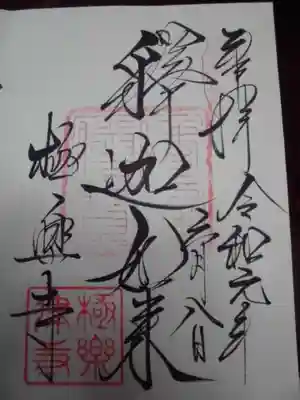 奉拝 令和元年
六月八日
釋迦如来
極樂寺
極樂
律寺